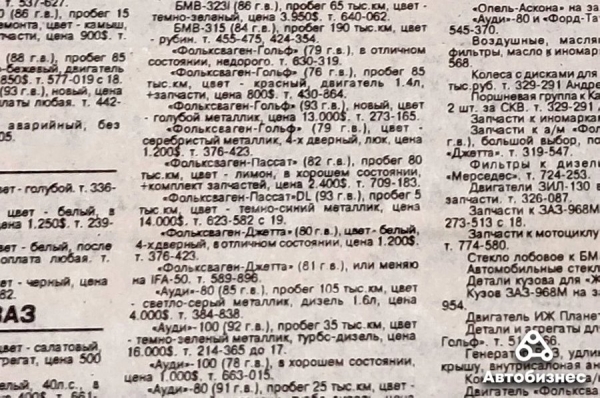 т. 537-627.
86 г. в.), пробег 15
ремонта, цвет - камыш,
пчасти, цена 900$. т.
(88 г.в.), пробег 85
о-бежевый, двигатель
850$. т. 577-019 с 18.
(93 г.в.), новый, цена
платы любая. т. 442-
аварийный, без
05.
вет - голубой. т. 336-
цвет - белый, в
цена 1.250$. т. 239-
вет - белый, после
оплата любая. т.
вет - черный, цена
82.
ЗАЗ
цвет - салатовый
грегат, цена 500
елый, 40л.с., в
400$. т. 661-
БМВ-323i (86 г.в.), пробег 65 тыс.км, цвет -
темно-зеленый, цена 3.950$. т. 640-062.
БМВ-315 (84 г.в.), пробег 190 тыс.км, цвет
- рубин. т. 455-475, 424-354.
«Фольксваген-Гольф» (79 г.в.), в отличном
состоянии, недорого. т. 630-319.
«Фольксваген-Гольф» (76 г.в.), пробег 85
тыс.км, цвет - красный, двигатель 1.4л,
+запчасти, цена 800$. т. 430-864.
«Фольксваген-Гольф» (93 г.в.), новый, цвет
- голубой металлик, цена 13.000$. т. 273-165.
«Фольксваген-Гольф» (79 г.в.), цвет -
серебристый металлик, 4-х дверный, люк, цена
1.200$. т. 376-423.
«Фольксваген-Пассат» (82 г.в.), пробег 80
тыс.км, цвет - лимон, в хорошем состоянии,
+комплект запчастей, цена 2.400$. т. 709-183.
«Фольксваген-Пассат»DL (93 г.в.), пробег 5
тыс.км, цвет - темно-синий металлик, цена
14.000$. т. 623-582 с 19.
«Фольксваген-Джетта» (80 г.в.), цвет - белый,
4-хдверный, в отличном состоянии, цена 1.200$.
т. 376-423.
«Фольксваген-Джетта» (81 г.в.), или меняю
на IFA-50. т. 589-896.
«Ауди»-80 (85 г.в.), пробег 105 тыс.км, цвет
- светло-серый металлик, дизель 1.6л, цена
4.000$. т. 384-838.
«Ауди»-100 (92 г.в.), пробег 35 тыс.км, цвет
- темно-зеленый металлик, турбо-дизель, цена
16.000$. т. 214-365 до 17.
«Ауди»-100 (78 г.в.), в хорошем состоянии,
цена 1.000$. т. 663-015.
«Ауди»-80 (91 г.в.), пробег 25 тыс.км, цвет -
«Опель-Аскона» на за
«Ауди»-80 и «Форд-Та
545-201.
Воздушные, масля
фильтры, масло к иномар
568.
Колеса с дисками для
тыс.руб. т. 329-291 Андре
Поршневая группа к Ка
2 шт. за СКВ. т. 329-291
Запчасти к иномарка
Запчасти к а/м «Фол
г.в.), большой выбор, по
«Джетта». т. 319-547.
Фильтры к дизел
«Мерседес». т. 724-253.
Двигатели ЗИЛ-130 в
запчасти. т. 326-087.
Запчасти к ЗАЗ-968М
273-513 с 18.
Запчасти к мотоциклу
т. 774-580.
Стекло лобовое к БМ
Автомобильные стекл
Детали кузова для «Ж
Кузов ЗАЗ-968М на за
954.
Двигатель ИЖ Плане
Детали и агрегаты для
Гольф». т.
Генера
крышу, внутрисалоная
Автобизнес